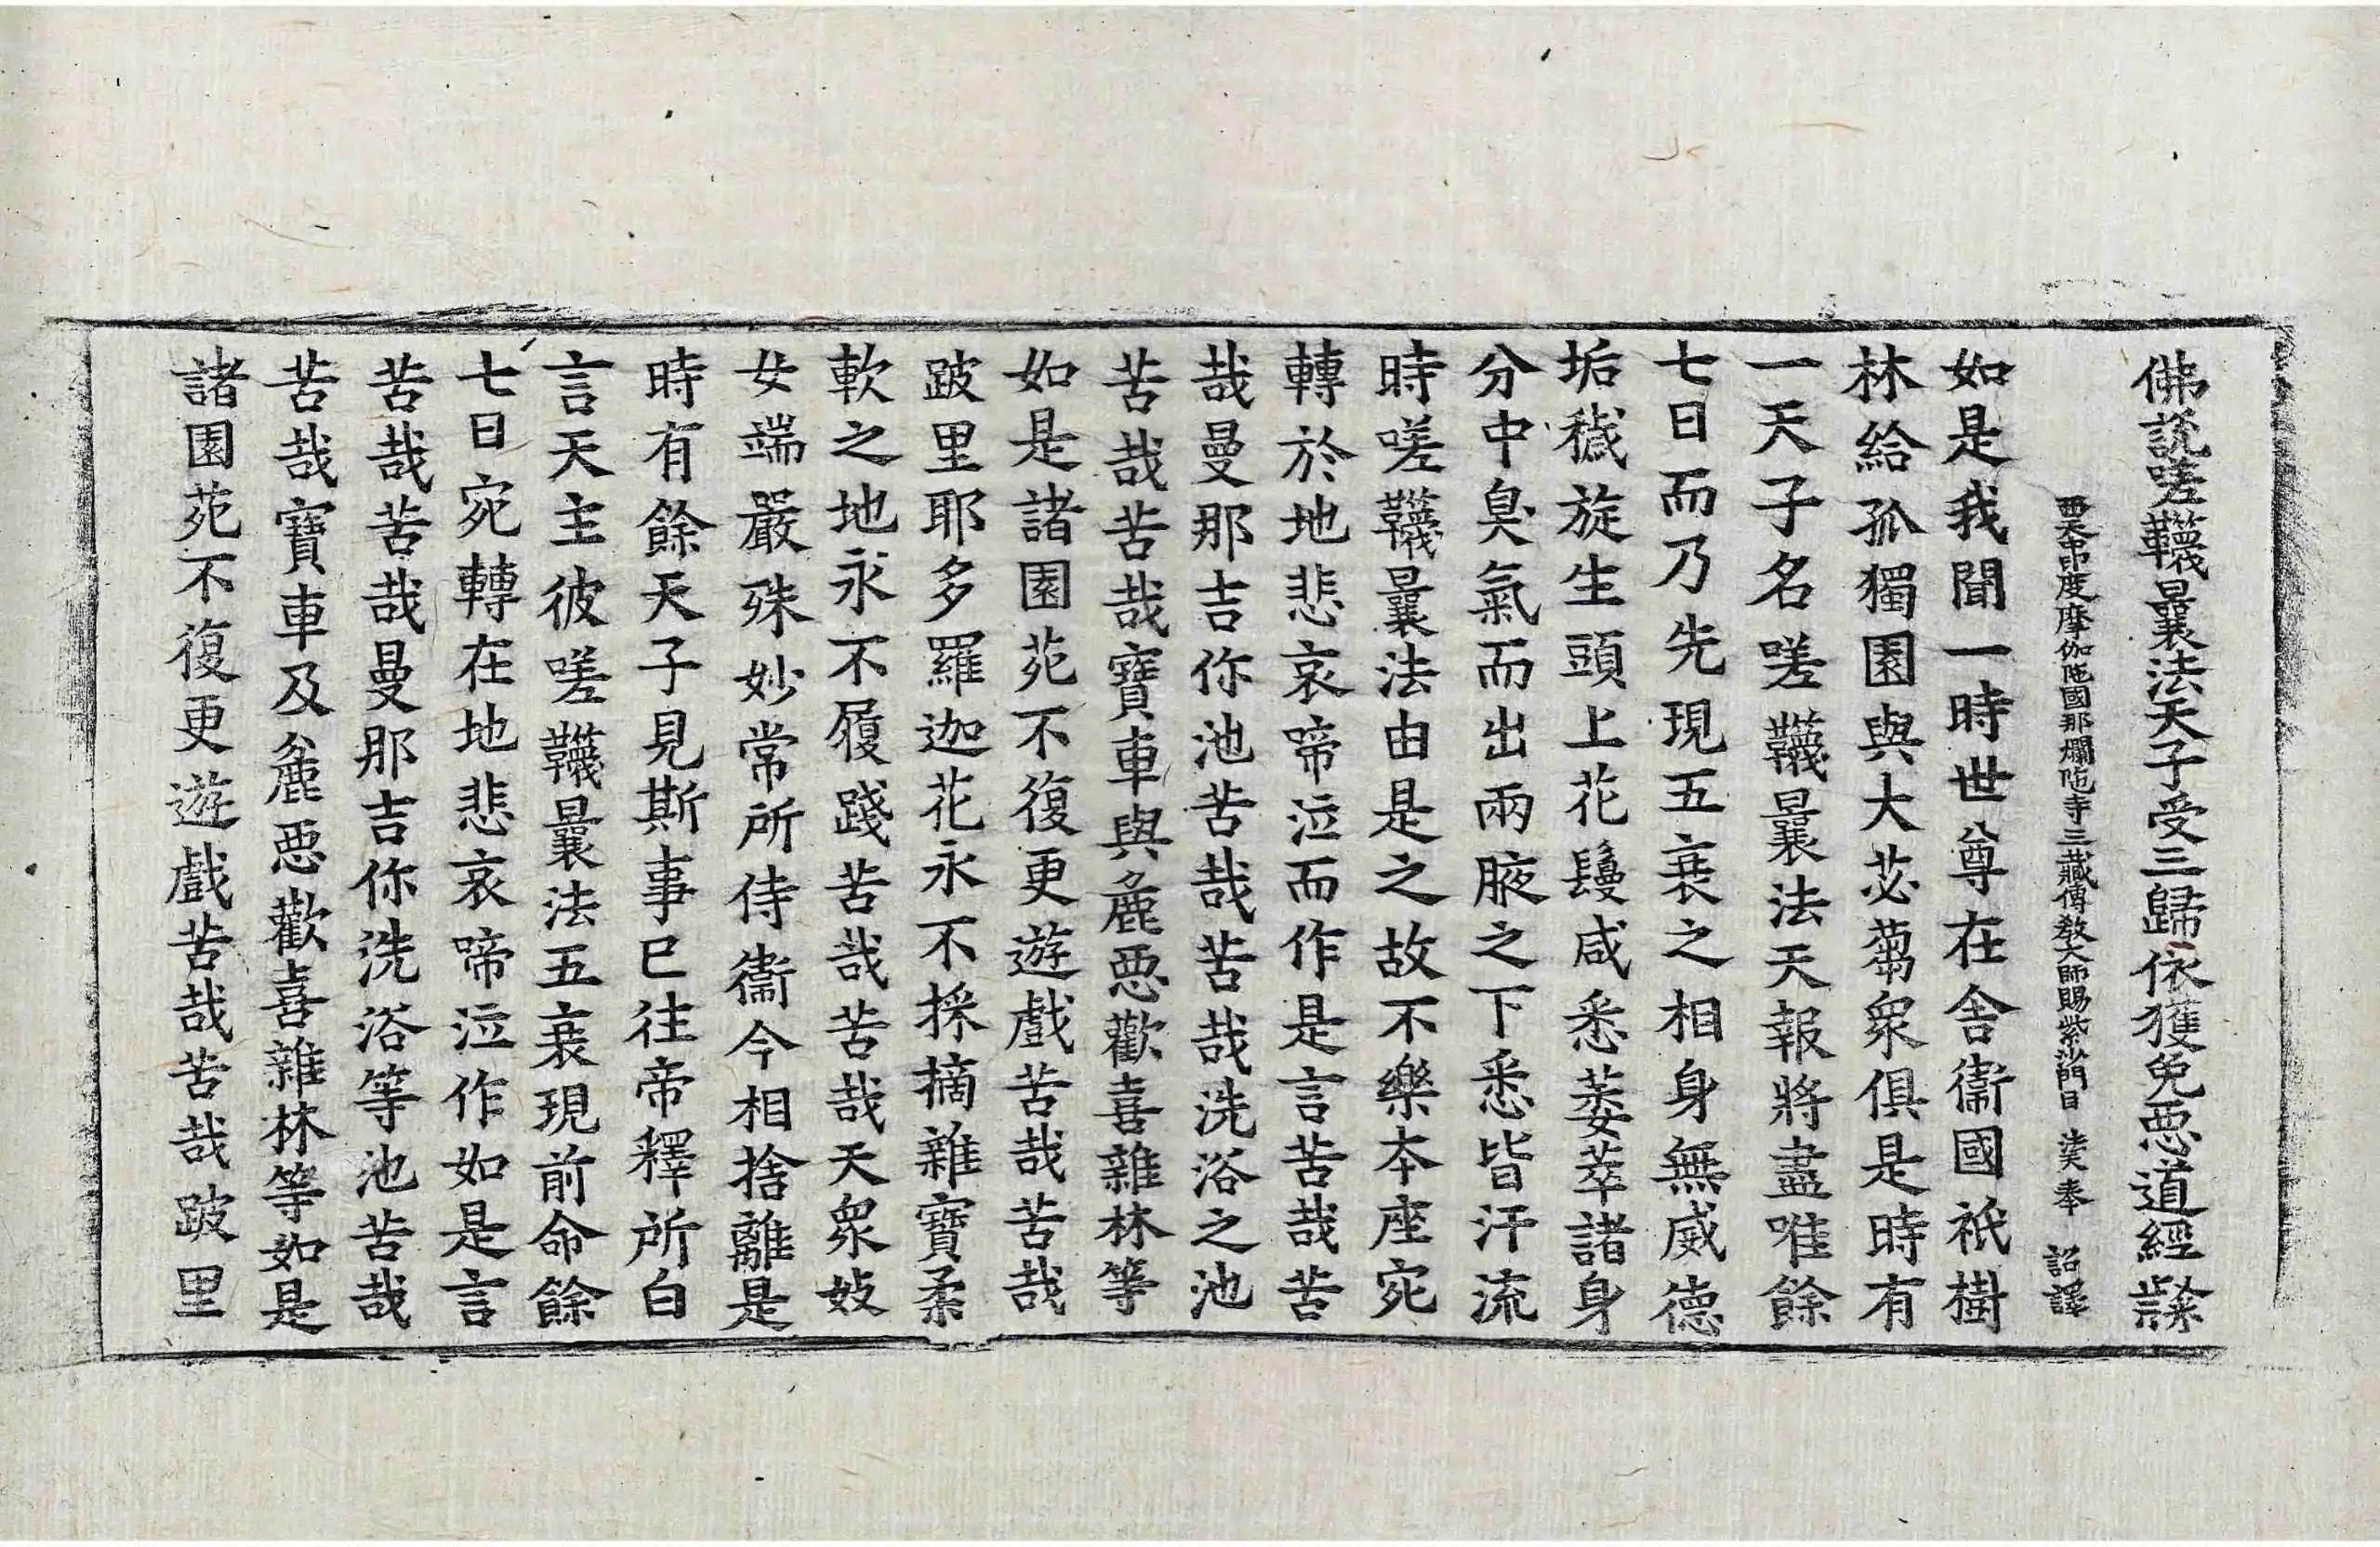 佛說嗟韈曩法天子受三歸依獲免惡道經 譺
西天中度摩伽陁國那爛陁寺三藏傳教大師賜紫沙門臣 法天奉 詔譯
如是我聞一時世尊在舍衞國祇樹
林給孤獨園與大苾蒭衆俱是時有
一天子名嗟韈曩法天報將盡唯餘
七日而乃先現五衰之相身無威德
垢穢旋生頭上花鬘咸悉萎萃諸身
分中臭氣而出兩腋之下悉皆汗流
時嗟韈曩法由是之故不樂本座宛
轉於地悲哀啼泣而作是言苦哉苦
哉曼那吉你池苦哉苦哉洗浴之池
苦哉苦哉寶車與麁惡歡喜雜林等
如是諸園苑不復更遊戲苦哉苦哉
跛里耶多羅迦花永不採摘雜寶柔
軟之地永不履踐苦哉苦哉天衆妓
女端嚴殊妙常所侍衞今相捨離是
時有餘天子見斯事已往帝釋所白
言天主彼嗟韈曩法五衰現前命餘
七日宛轉在地悲哀啼泣作如是言
苦哉苦哉曼那吉你洗浴等池苦哉
苦哉寶車及麁惡歡喜雜林等如是
諸園苑不復更遊戲苦哉苦哉跛里